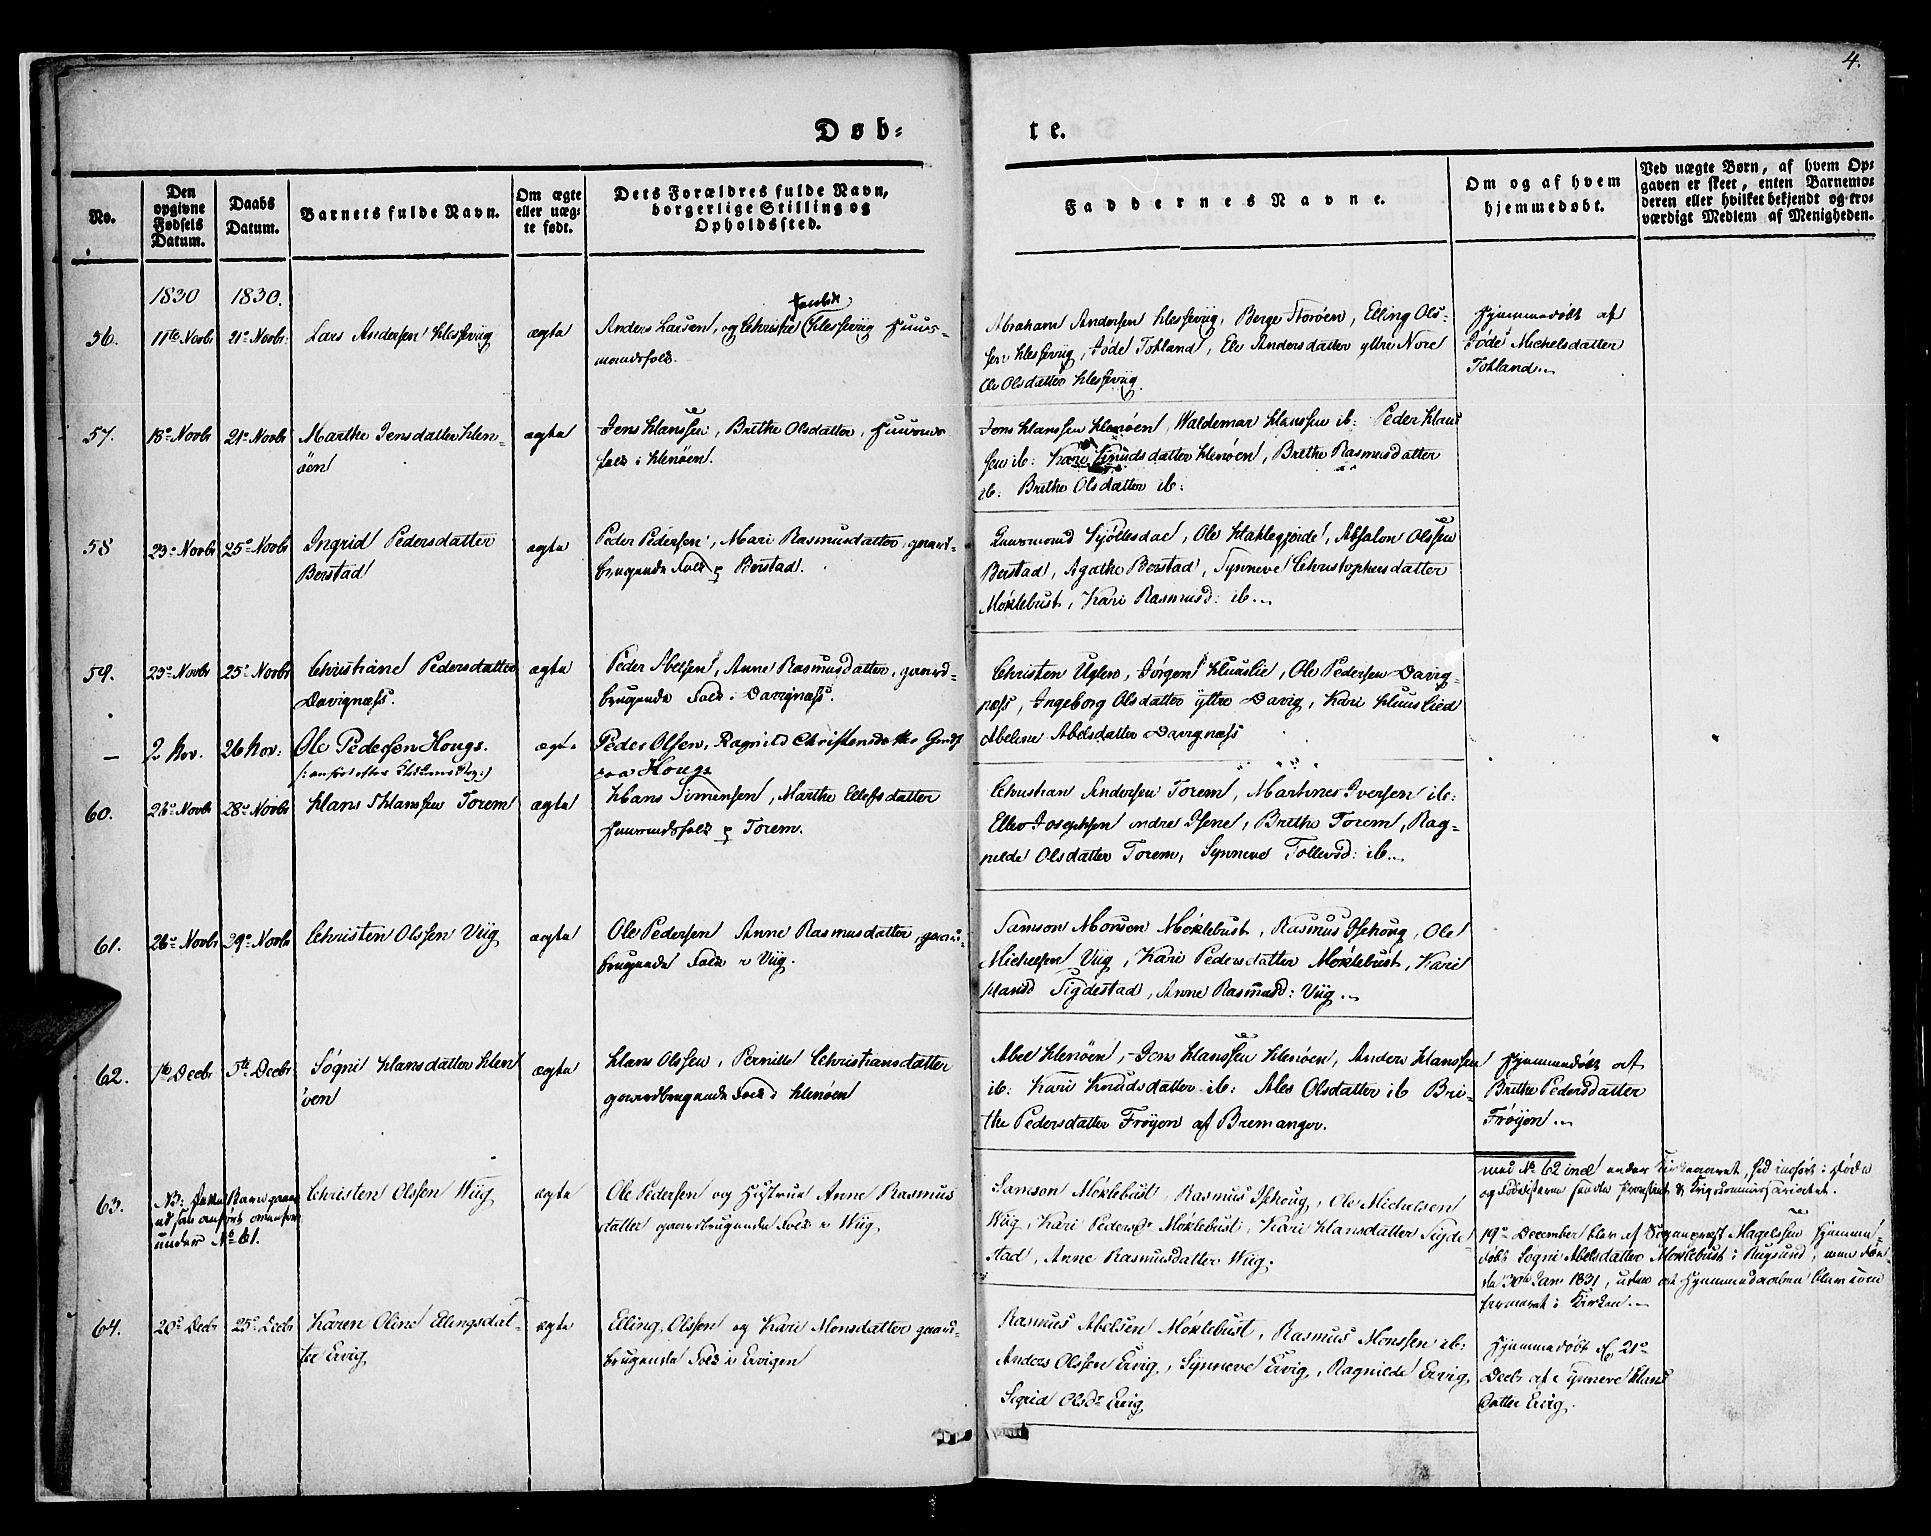 4.
Døb-
te.
No.
Den opgivne Fødsels Datum.
Daabs Datum.
Barnets fulde Navn.
Om ægte eller uægte født.
Dets Forældres fulde Navn, borgerlige Stilling og Opholdssted.
Faddernes Navne.
Om og af hvem hjemmedøbt.
Ved uægte Børn, af hvem Opgaven er skeet, enten Barnemoderen eller hvilket bekjendt og troværdigt Medlem af Menigheden.
1830 1830.
56. 11te Novbr 21de Novbr: Lars Andersen Hessevig ægte
Anders Larsen, og Christie Hessevig Huus-
mandsfolk.
Abraham Andersen Hessevig, Berge Storøen, Elling Ols-
sen Hessevig, Jøde Totland, Ele Andersdatter yttre Nore
Ele Olsdatter Hessevig
Hjemmedøbt af
Jøde Michelsdatter
Totland
57. 18de Novbr 21de Novbr Marthe Jensdatter Hen-
øen ægte
Jens Hanssen, Brethe Olsdatter, Huusmands
folk i Henøen.
Jens Hanssen Henøen, Waldemar Hanssen ib: Peder Hans
sen ib: Kari Knudsdatter Henøen, Brethe Rasmusdatter
ib: Brethe Olsdatter ib:
58 23de Novbr 25de Novbr Ingrid Pedersdatter
Berstad ægte
Peder Pedersen, Mari Rasmusdatter, gaard-
brugende Folk p Berstad.
Guurmund Hjøllesdal, Ole Haklegjerde, Absalon Olssen
Berstad, Agathe Berstad, Synneve Christophersdatter
Møklebust, Kari Rasmusd: ib
59. 23de Novbr 25de Novbr Christiane Pedersdatter
Davignæss. ægte
Peder Abelsen, Anne Rasmusdatter, gaard-
brugende Folk i Davignæss.
Christen Uglen, Jørgen Huuslie, Ole Pedersen Davig-
næss, Ingeborg Olsdatter yttre Davig, Kari Huuslied
Abeline Abelsdatter Davignæss
— 2 Nov. 26 Nov: Ole Pedersen Hougs. ægte
Peder Olsen, Ragnild Christensdatter
paa Hougs
60. 26de Novbr 28de Novbr Hans Hanssen Torem ægte
Hans Simensen, Marthe Ellefsdatter
Huusmandsfolk p Torem.
Christian Andersen Torem, Martines Iversen ib:
Ellev Josephsen indre Isene, Brethe Torem, Rag-
nilde Olsdatter Torem, Synneve Tollevsd: ib
61. 26de Novbr 29de Novbr Christen Olssen Viig ægte
Ole Pedersen Anne Rasmusdatter, gaard-
brugende Folk i Viig.
Samson Monsen Møklebust, Rasmus Isehoug, Ole
Michelsen Viig, Kari Pedersdatter Møklebust, Kari
Hansd Sigdestad, Anne Rasmusd: Viig
62. 1te Decbr 5te Decbr Søgni Hansdatter Hen
øen ægte
Hans Olssen, Pernille Christiansdatter
gaardbrugende Folk i Henøen
Abel Henøen, Jens Hanssen Henøen, Anders Hanssen
ib: Kari Knudsdatter ib: Ales Olsdatter ib Bri-
the Pedersdatter Frøyen af Bremanger.
Hjemmedøbt af
Brethe Pedersdatter
Frøyen
63. NB: dette Barn
anført ovenfor
under No 61.
Christen Olssen Wiig ægte
Ole Pedersen og Hustrue Anne Rasmus
datter gaardbrugende Folk i Wiig
Samson Møklebust, Rasmus Isehoug, Ole Michelsen
Wiig, Kari Pedersdr Møklebust, Kari Hansdatter Sigde-
stad, Anne Rasmusdatter Wiig.
med No 62 incl
19de December blev af Sogneprest Magelssen Hjemme-
døbt Søgni Abelsdatter Møklebust i Rugsund, men døde
30te Jan 1831, uden at Hjemmedaaben blev con
firmeret i Kirken
64. 20de Decbr 25de Decbr Karen Oline Ellingsdat-
ter Ervig ægte
Elling Olsson og Kari Monsdatter gaard-
brugende Folk i Ervigen
Rasmus Abelsen Møklebust, Rasmus Monssen ib:
Anders Olssen Ervig, Synneve Ervig, Ragnilde Ervig,
Sigrid Olsdr Ervig
Hjemmedøbt d. 21de
Decbr af Synneve Hans
datter Ervig.